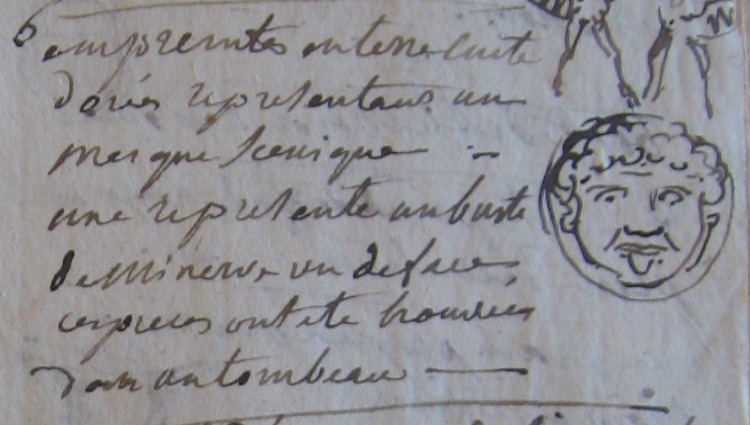 6 empreintes en terre cuite
dorées representans un
masque scenique —
une represente un buste
de Minerve vu de face
ces pieces ont ete trouvées
dans un tombeau —